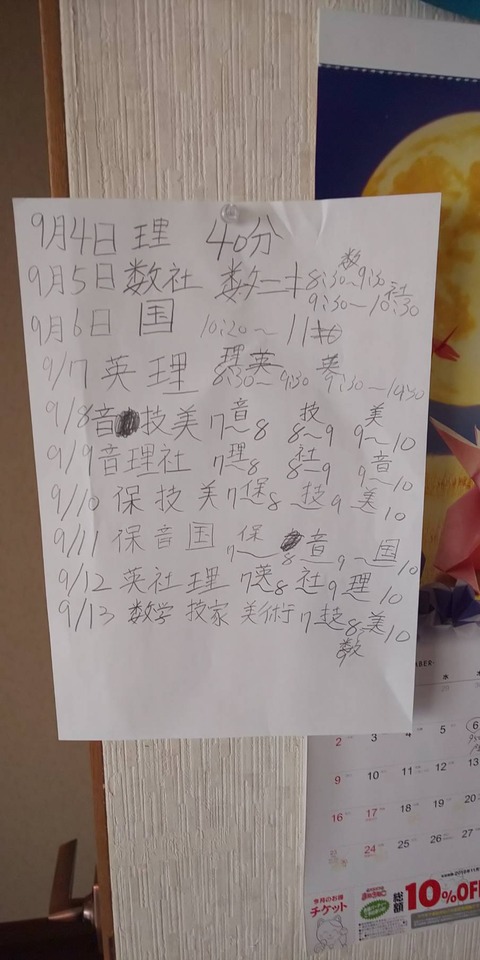 9月4日 理 40分
数
9月5日 数社 8:30~9:30
社
9:30~10:30
9月6日 国 10:20~11
理英 英
9/7 英理 8:30~9:30 9:30~10:30
音 技 美
9/8 音 技美 7~8 8~9 9~10
理 社 音
9/9 音理社 7~8 8~9 9~10
9/10 保技美 7保8 技9 美10
9/11 保音国 7保8 音9 国10
9/12 英社理 7英8 社9 理10
9/13 数学 技家 美術 7技8 美10
数
水
2 3 4 5 6
9 10 11 12 13
16 17 18 19 20
23 24 25 26 27
チケット
総額
10%OFF